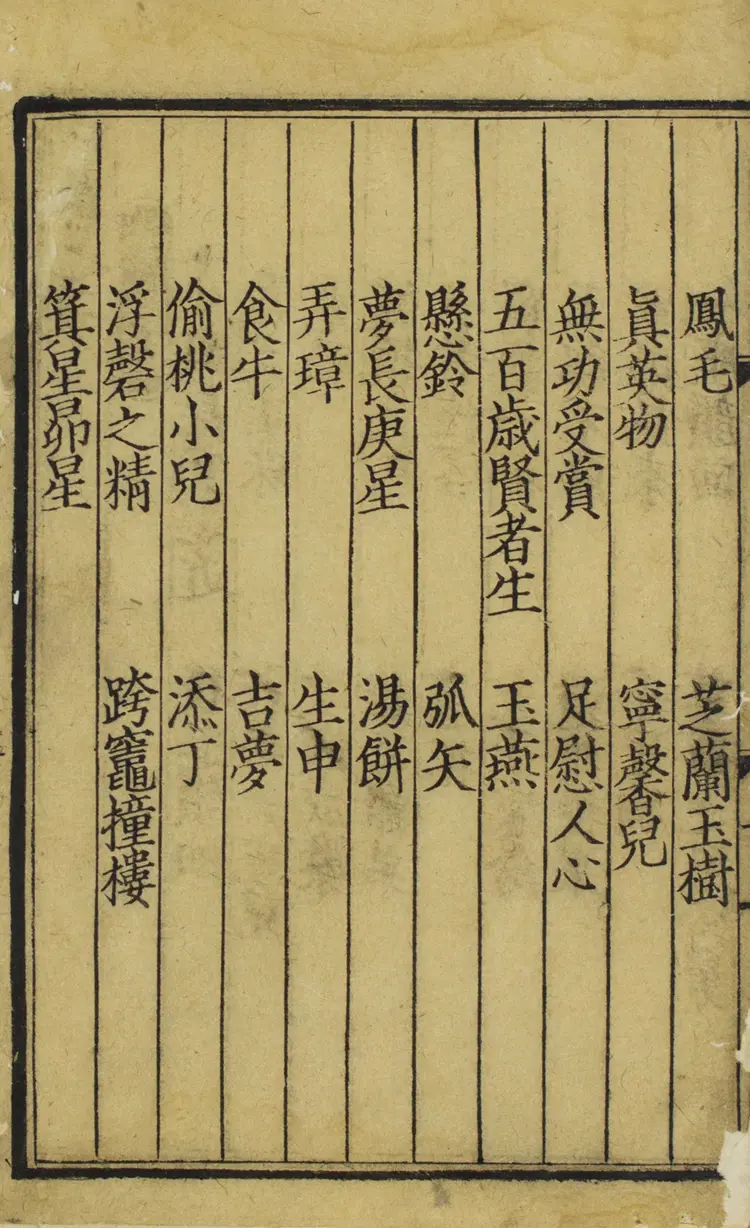 鳳毛　芝蘭玉樹
眞英物　寧馨兒
無功受賞　足慰人心
五百歲賢者生　玉燕
懸鈴　弧矢
夢長庚星　湯餅
弄璋　生申
食牛　吉夢
偷桃小兒　添丁
浮磬之精　跨竈撞樓
箕星昴星